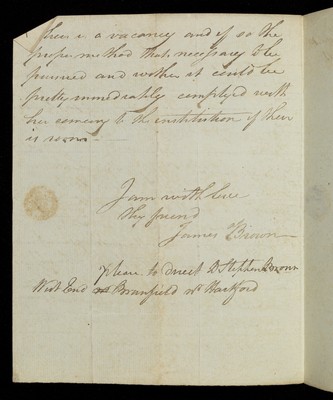 there is a vacancy and if so the
proper method that necessary to be
pursued and wether it could be
pretty immediately complyed with
her comeing to the institution if there
is room
I am with love
thy friend
James Brown
Please to direct D Stephen Brown
West End Bramfield nr Hartford